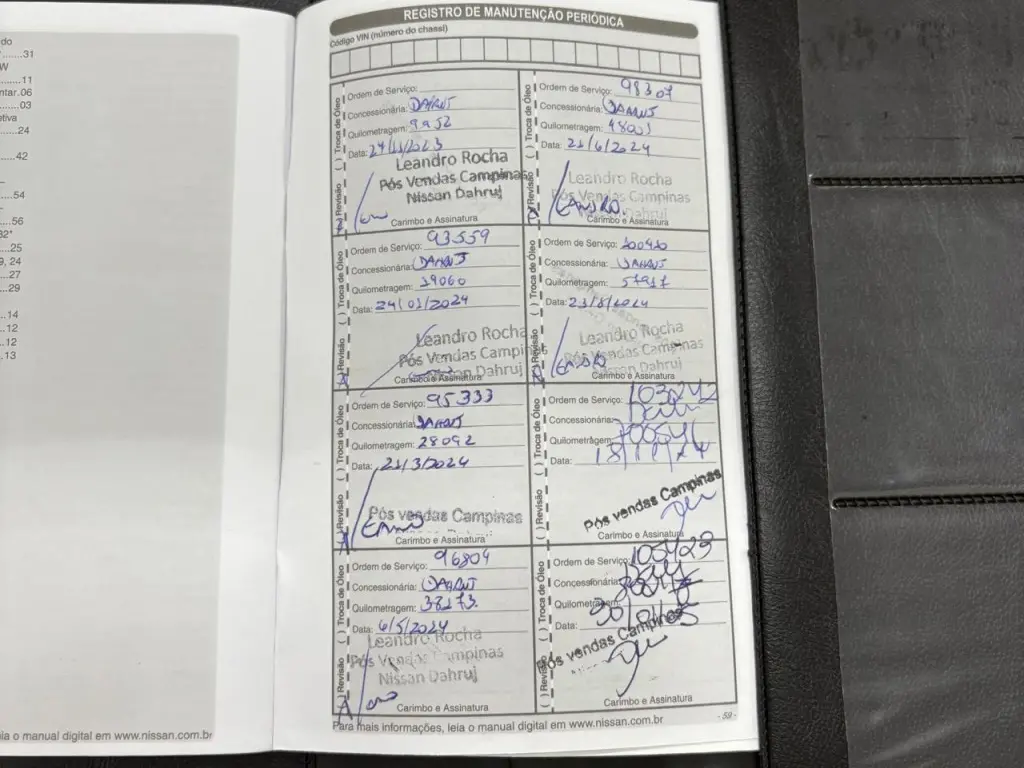 do
......31
W
......11
ntar.06
......03
etiva
......24
......42
......54
......56
32*
......25
9, 24
......27
......29
......14
......12
......12
......13
ia o manual digital em www.nissan.com.br
REGISTRO DE MANUTENÇÃO PERIÓDICA
Código VIN (número do chassi)
( ) Revisão ( ) Troca de Óleo
Ordem de Serviço:
Concessionária: DAHRUJ
Quilometragem: 9952
Data: 24/11/2023
Leandro Rocha
Pós Vendas Campinas
Nissan Dahruj
Carimbo e Assinatura
( ) Revisão ( ) Troca de Óleo
Ordem de Serviço: 93559
Concessionária: DAHRUJ
Quilometragem: 19060
Data: 24/01/2024
Leandro Rocha
Pós Vendas Campinas
Nissan Dahruj
Carimbo e Assinatura
( ) Revisão ( ) Troca de Óleo
Ordem de Serviço: 95333
Concessionária: DAHRUJ
Quilometragem: 28092
Data: 21/3/2024
Pós vendas Campinas
Carimbo e Assinatura
( ) Revisão ( ) Troca de Óleo
Ordem de Serviço: 96804
Concessionária: DAHRUJ
Quilometragem: 38173
Data: 6/5/2024
Leandro Rocha
Pós Vendas Campinas
Nissan Dahruj
Carimbo e Assinatura
( ) Revisão ( ) Troca de Óleo
Ordem de Serviço: 98307
Concessionária: DAHRUJ
Quilometragem:
Data: 21/6/2024
Leandro Rocha
Pós Vendas Campinas
Nissan Dahruj
LEANDRO.
Carimbo e Assinatura
( ) Revisão ( ) Troca de Óleo
Ordem de Serviço: 100410
Concessionária: DAHRUJ
Quilometragem: 57917
Data: 21/8/2024
Leandro Rocha
Pós Vendas Campinas
Nissan Dahruj
Carimbo e Assinatura
( ) Revisão ( ) Troca de Óleo
Ordem de Serviço: 103242
Concessionária:
Quilometragem:
Data: 18/11/24
Pós vendas Campinas
Carimbo e Assinatura
( ) Revisão ( ) Troca de Óleo
Ordem de Serviço: 105429
Concessionária:
Quilometragem:
Data:
Pós vendas Campinas
Carimbo e Assinatura
Para mais informações, leia o manual digital em www.nissan.com.br
- 59 -